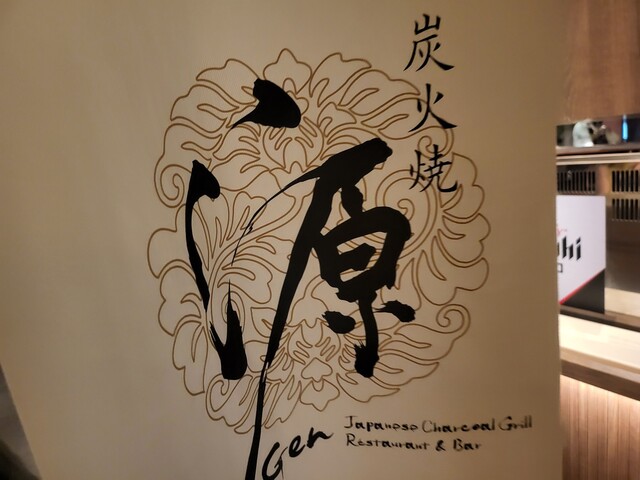 炭火焼
源
Gen
Japanese Charcoal Grill
Restaurant & Bar